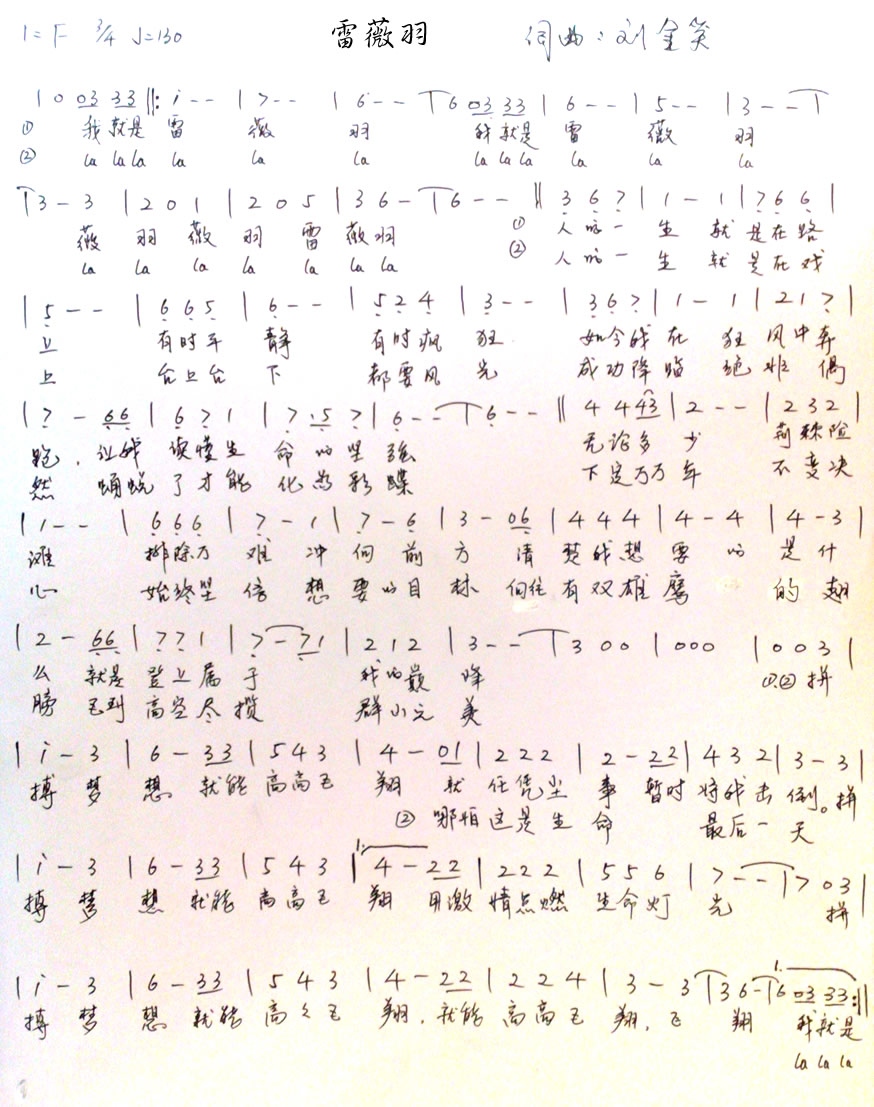 1=F 3/4 ♩=130 雷薇羽 词曲：刘金笑
| 0 03 33 ‖: i - - | 7 - - | 6 - - | 6 03 33 | 6 - - | 5 - - | 3 - - |
① 我 就是 雷 薇 羽 我 就是 雷 薇 羽
② La La La La La La La La La La La La
| 3 - 3 | 2 0 1 | 2 0 5 | 3 6 - | 6 - - ‖ 3 6 7 | 1 - 1 | 7 6 6 |
薇 羽 薇 羽 雷 薇 羽 ① 人的一 生 就 是在路
La La La La La La La ② 人的一 生 就 是在戏
| 5 - - | 6 6 5 | 6 - - | 5 2 4 | 3 - - | 3 6 7 | 1 - 1 | 2 1 7 |
上 有时平 静 有时疯 狂 如今我 在 狂 风中奔
上 台上台 下 都要风 光 成功降 临 绝 非 偶
| 7 - 66 | 6 7 1 | 7 · 5 7 | 6 - - | 6 - - ‖ 4 4 43 | 2 - - | 2 3 2 |
跑，让我 读懂生 命 的 坚 强 无论多 少 荆棘险
然 蛹蜕 了才能 化 为 彩 蝶 下定万万 年 不变决
| 1 - - | 6 6 6 | 7 - 1 | 7 - 6 | 3 - 06 | 4 4 4 | 4 - 4 | 4 - 3 |
滩 排除万 难 冲 向 前 方 清 楚我想 要 的 是 什
心 始终坚 信 想 要的目 标 向往 有双雄 鹰 的 翅
| 2 - 66 | 7 7 1 | 7 - 71 | 2 1 2 | 3 - - | 3 0 0 | 0 0 0 | 0 0 3 |
么 就是 登上属 于 我的巅 峰 ①.② 拼
膀 飞到 高空尽 揽 群山之 美
| i - 3 | 6 - 33 | 5 4 3 | 4 - 01 | 2 2 2 | 2 - 22 | 4 3 2 | 3 - 3 |
搏 梦 想 就能 高高飞 翔 就 任凭尘 事 暂时 将我击 倒。拼
② 哪怕这是 生 命 最后一 天
| i - 3 | 6 - 33 | 5 4 3 | 1. 4 - 22 | 2 2 2 | 5 5 6 | 7 - - | 7 03 |
搏 梦 想 就能 高高飞 翔 用激 情点燃 生命灯 光 拼
| i - 3 | 6 - 33 | 5 4 3 | 4 - 22 | 2 2 4 | 3 - 3 | 3 6 - | 1. 6 03 33 :‖
搏 梦 想 就能 高高飞 翔，就能 高高飞 翔，飞 翔 我就是
La La La